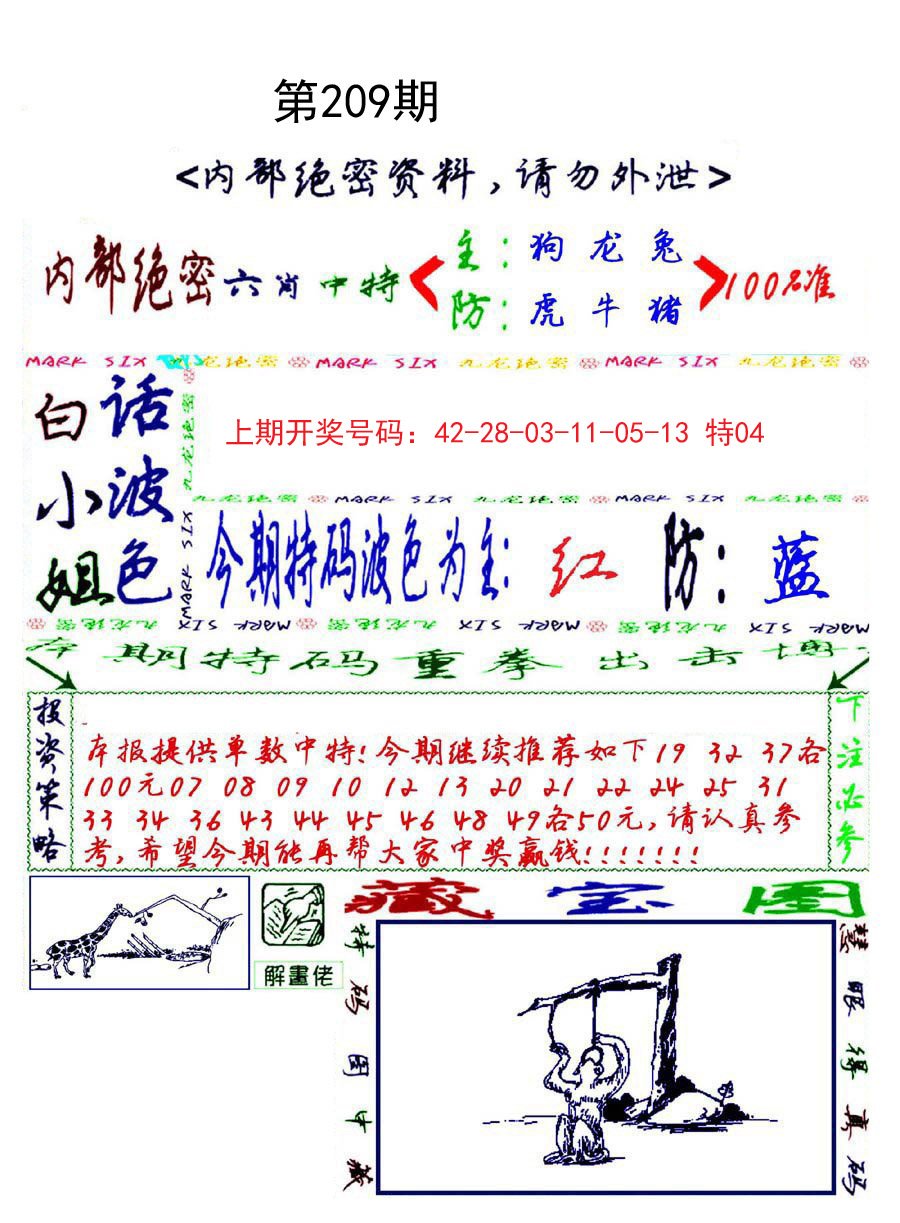 第209期
<内部绝密资料,请勿外泄>
内部绝密六肖中特
主:狗 龙 兔
防:虎 牛 猪
100%准
MARK SIX 九龙绝密 MARK SIX 九龙绝密 MARK SIX 九龙绝密
白小姐
话波色
九龙绝密
MARK SIX
上期开奖号码: 42-28-03-11-05-13 特04
九龙绝密 MARK SIX 九龙绝密 MARK SIX 九龙绝密
今期特码波色为主: 红 防: 蓝
九龙绝密 MARK SIX 九龙绝密 MARK SIX 九龙绝密 MARK SIX
本期特码重拳出击博
投资策略
本报提供单数中特!今期继续推荐如下19 32 37各
100元07 08 09 10 12 13 20 21 22 24 25 31
33 34 36 43 44 45 46 48 49各50元,请认真参
考,希望今期能再帮大家中奖赢钱!!!!!!!
下注必参
解畫佬
藏宝图
特码图中藏
慧眼得真码